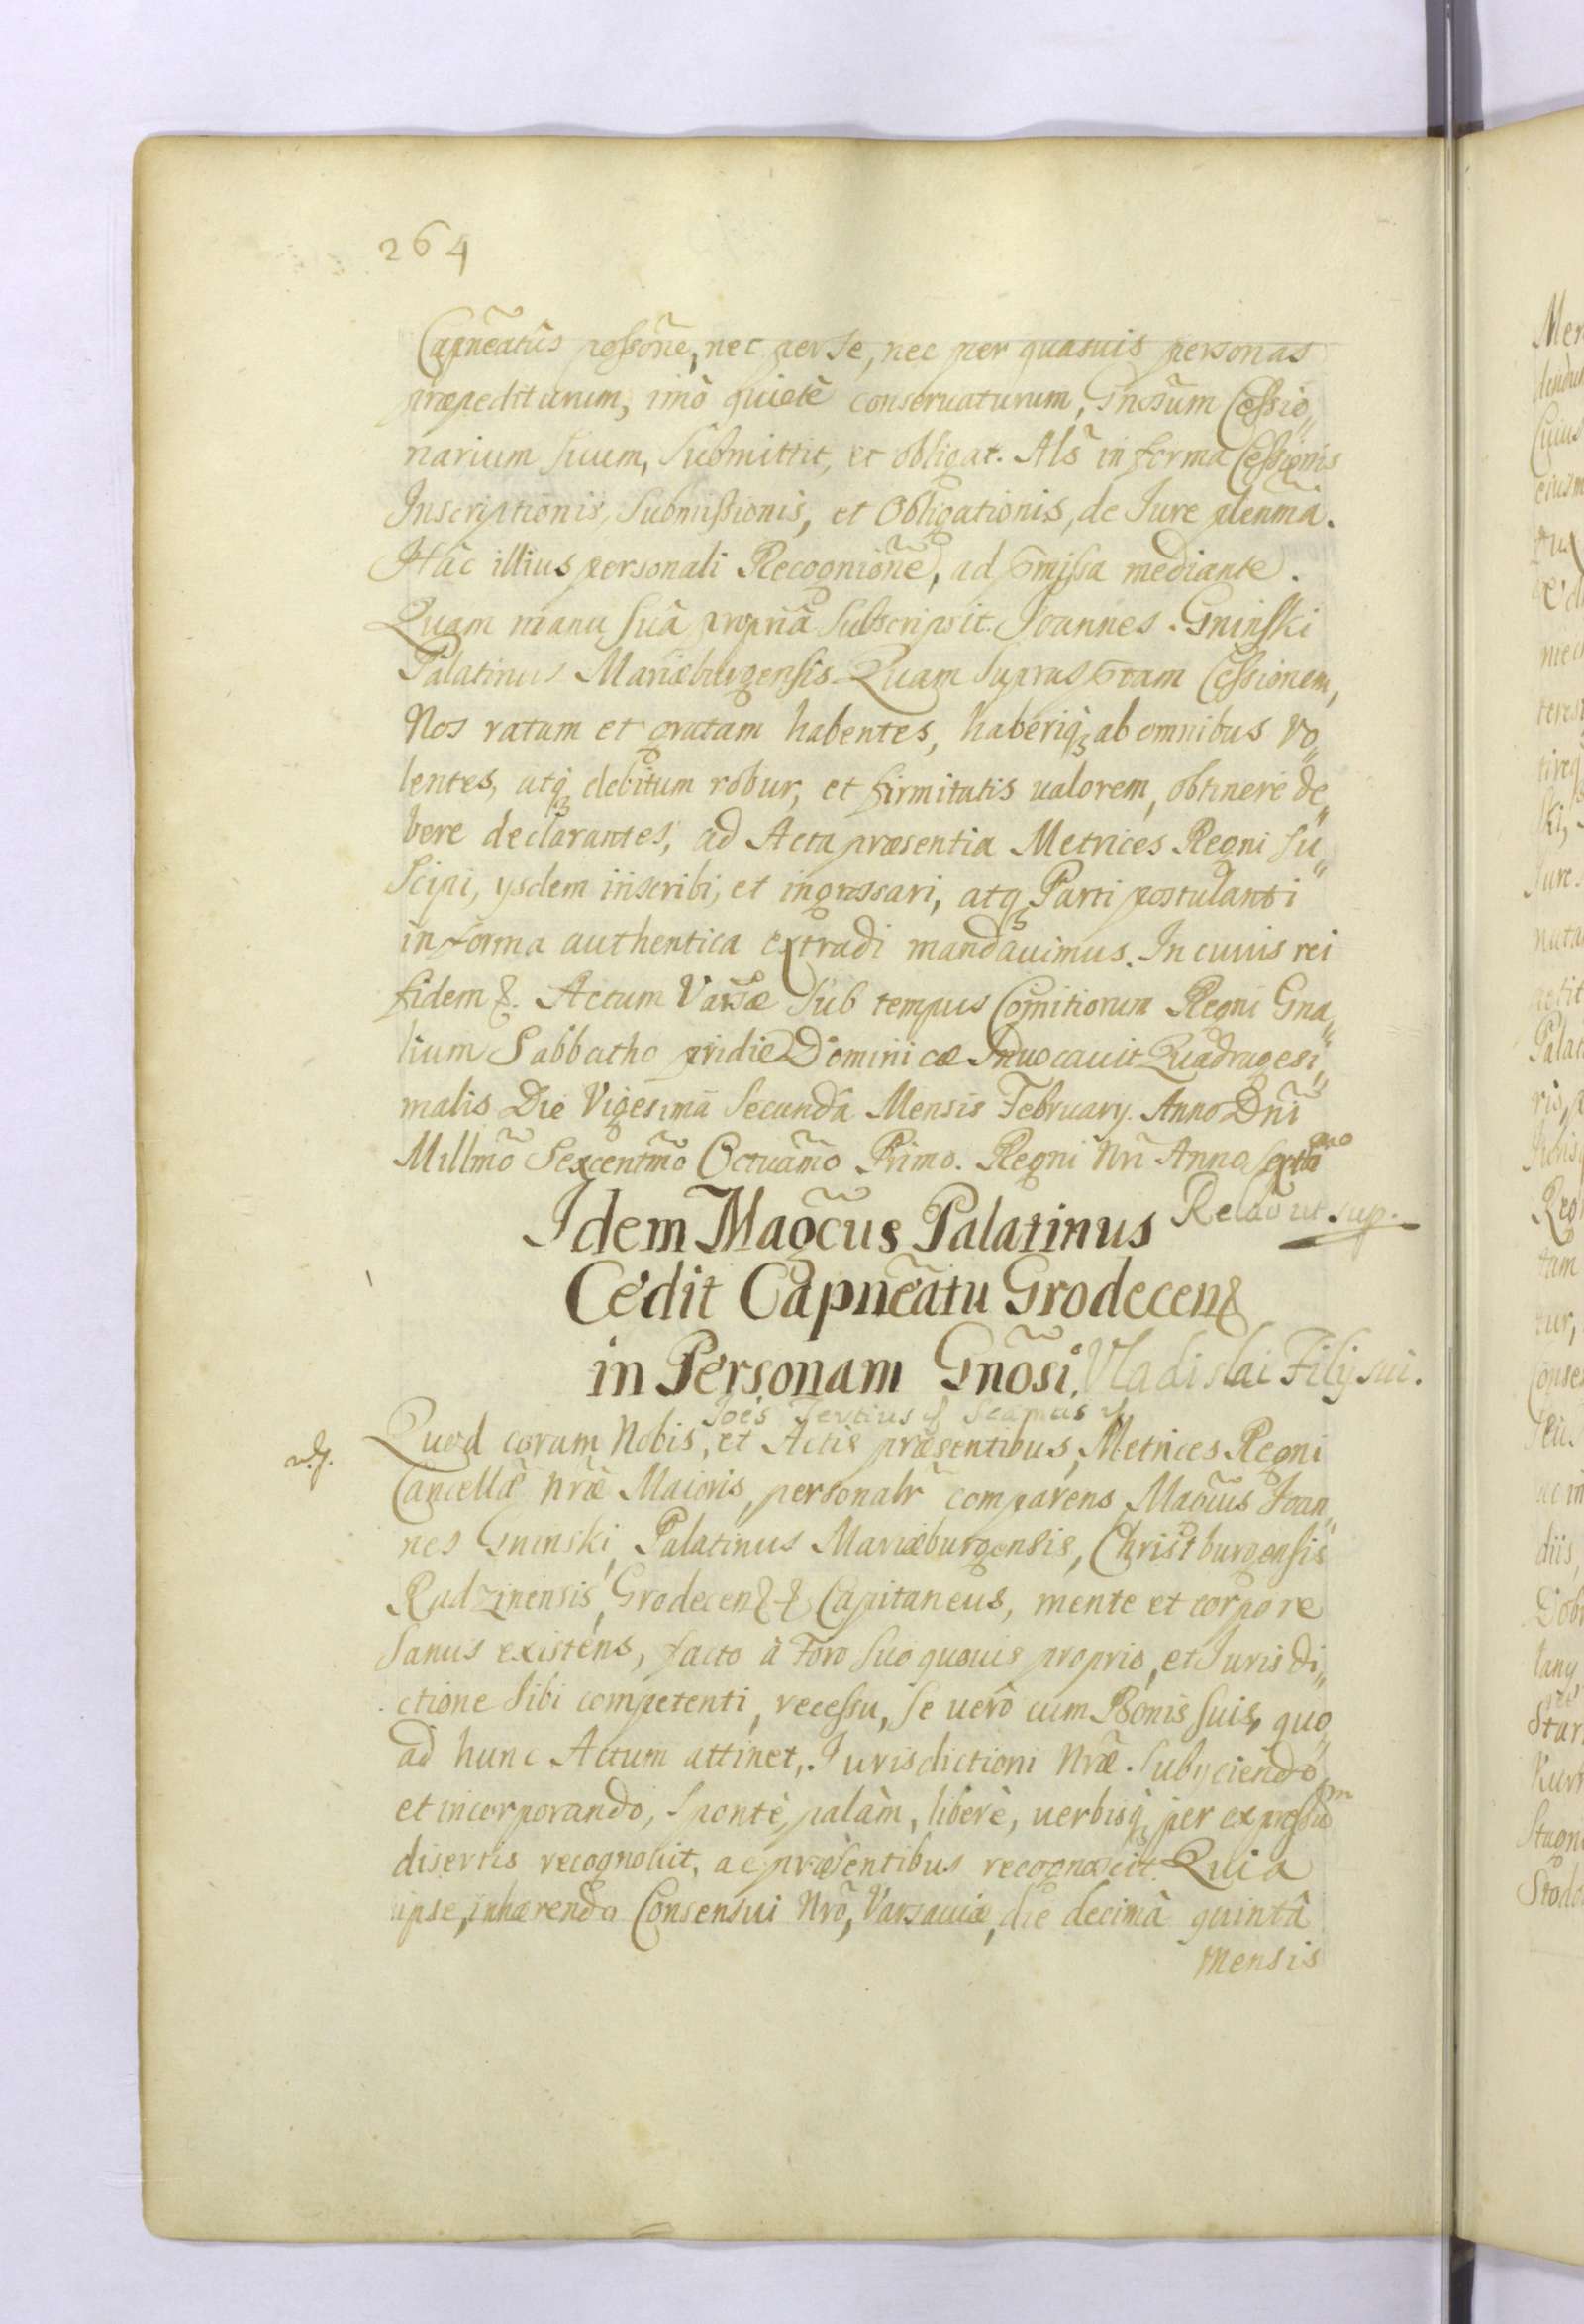 264
Capneatûs possõne, nec per se, nec per quasuis personas
præpediturum, imò quietè conservaturum, Gnosum Cessio„
narium suum, submittit, et obligat. Als in forma Cessionis
Inscriptionis, Submissionis, et Obligationis, de Iure plenma.
Hâc illius personali Recognione, ad pmissa mediante.
Quam manu suâ propriâ subscripsit. Joannes Gninski
Palatinus Mariæburgensis. Quam suprasptam Cessionem,
Nos ratam et gratam habentes, haberiq, ab omnibus vo„
lentes, atq debitum robur, et firmitatis ualorem, obtinere de„
bere declarantes, ad Acta præsentia Metrices Regni su„
scipi, ysdem inscribi, et ingrossari, atq Parti postulanti
in forma authentica extradi mandauimus. In cuius rei
fidem &. Actum Varsæ sub tempus Comitiorum Regni Gna„
lium Sabbatho pridie Dominicæ Inuocauit Quadragesi„
malis Die Vigesimâ Secundâ Mensis February. Anno Dni
Millmo Sexcentmo Octuamo Primo. Regni Nri Anno
Relao ut sup.
Idem Magcus Palatinus
Cedit Capneatu Grodecen&
in Personam Gnosi. Vladislai Filij sui.
Joes Tertius &
Quod coram Nobis, et Actis præsentibus, Metrices Regni
Cancellæ Nræ Maioris, personalr comparens Magcus Joan„
nes Gninski, Palatinus Mariæburgensis, Christburgensis
Radzinensis, Grodecen& & Capitaneus, mente et corpore
sanus existens, facto à Foro suo quouis proprio, et Iurisdi„
ctione sibi competenti, recessu, se uerò cum Bonis suis, quo„
ad hunc Actum attinet, Iurisdictioni Nræ. subyciendo
et incorporando, sponte, palàm, liberè, uerbisq, per expressum
disertis recognouit, ac præsentibus recognoscit. Quia
ipse, inhærendo Consensui Nro, Varsauiæ, die decimâ quintâ
Mensis